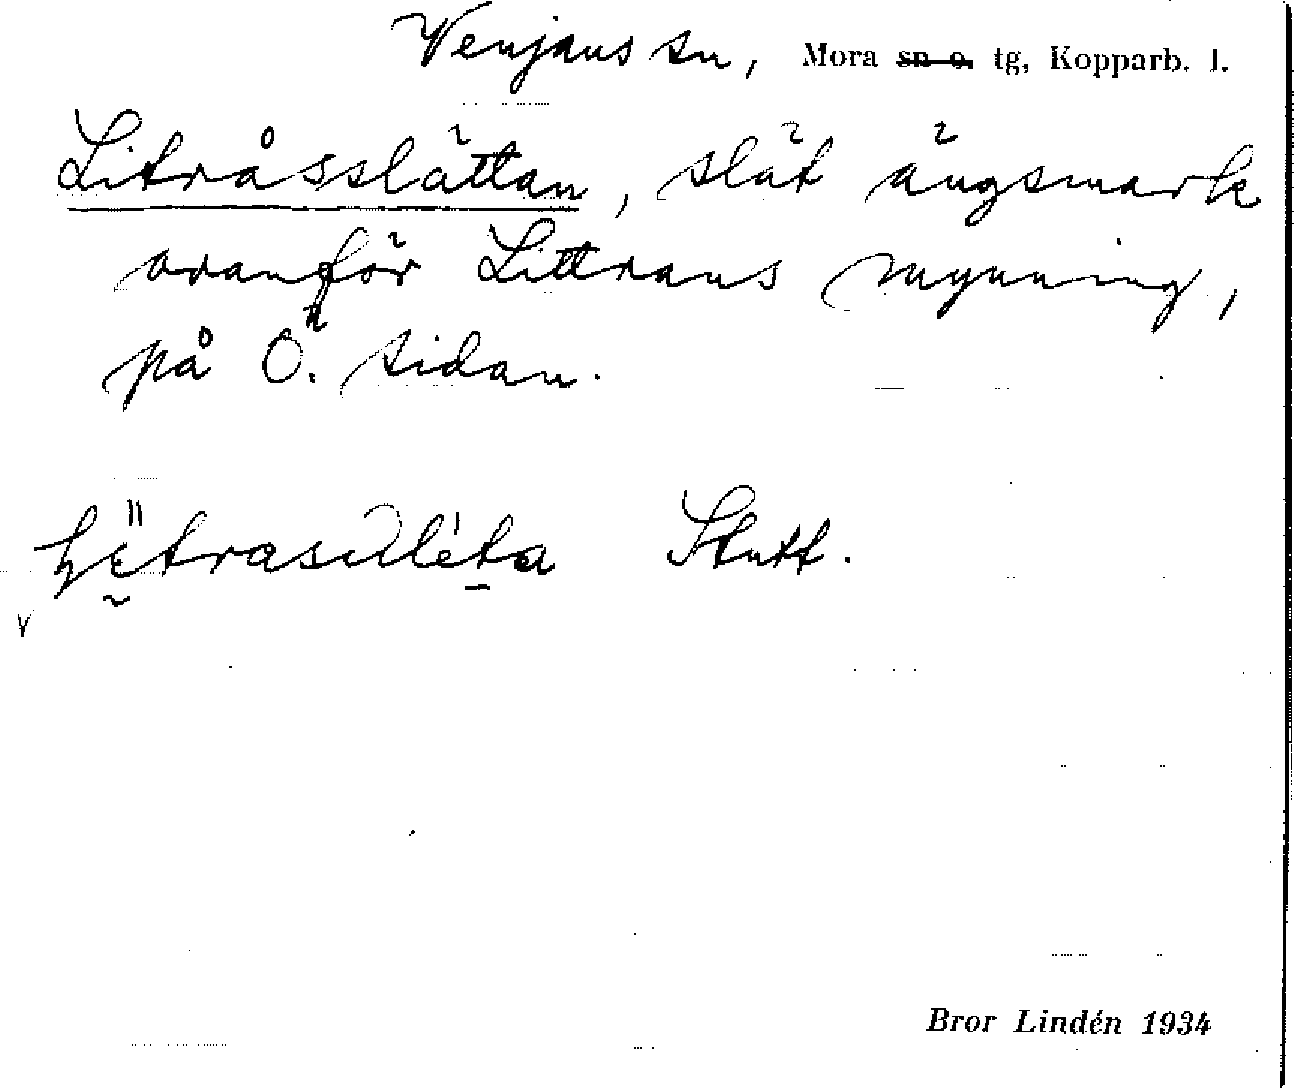 Venjans sn, Mora sn o. tg, Kopparb. l.
Litråsslättan, slät ängsmark
ovanför Littrans mynning,
på Ö. sidan.
Stutt.
Bror Lindén 1934